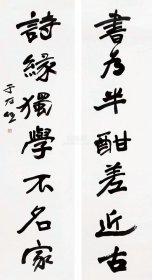 書為半酣差近古
詩緣獨學不名家
于右任